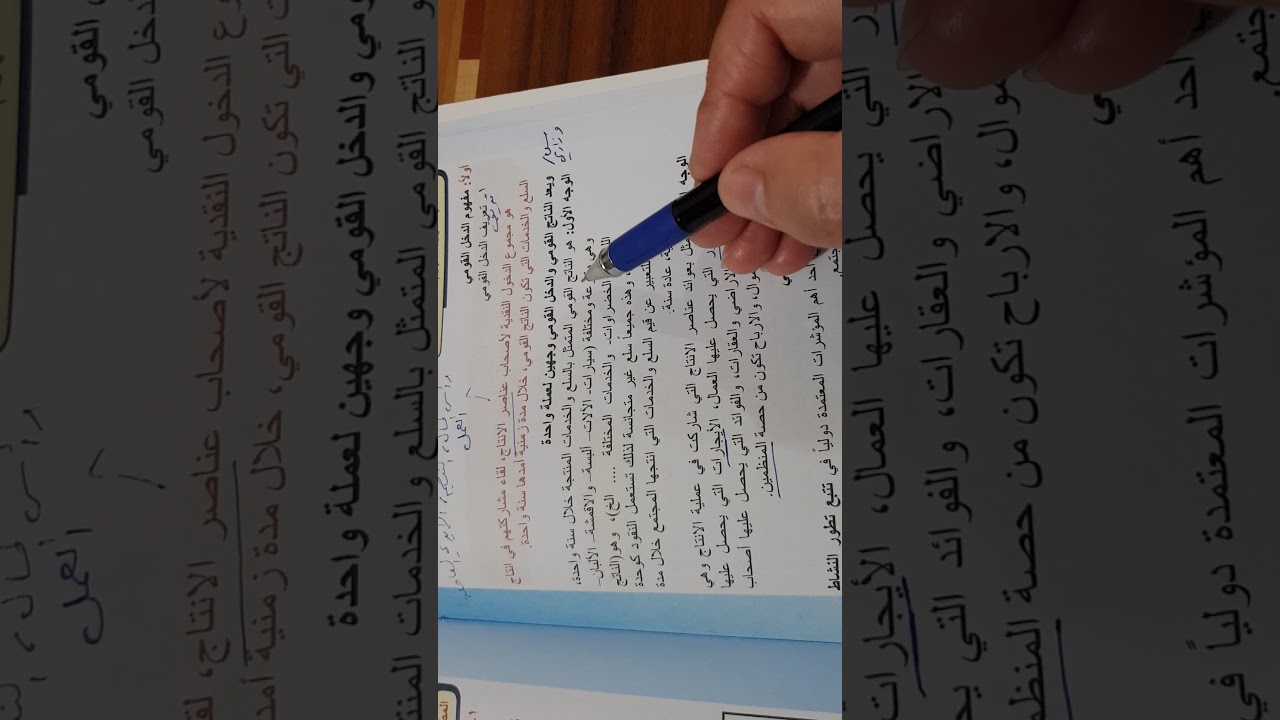 أولاً: مفهوم الدخل القومي
تعريف الدخل القومي
هو مجموع الدخول النقدية لأصحاب عناصر الانتاج، لقاء مشاركتهم في انتاج
السلع والخدمات التي تكون الناتج القومي، خلال مدة زمنية أمدها سنة واحدة.
ويعد الناتج القومي والدخل القومي وجهين لعملة واحدة
الوجه الأول: هو الناتج القومي المتمثل بالسلع والخدمات المنتجة خلال سنة واحدة،
ومختلفة (سيارات- الآلات- ألبسة- والاقمشة- الألبان-
الخضراوات- والخدمات المختلفة .... الخ)، وهو (الناتج
وهذه جميعاً سلع غير متجانسة لذلك تستعمل النقود كوحدة
للتعبير عن قيم السلع والخدمات التي انتجها المجتمع خلال مدة
عادة سنة.
الوجه
بعوائد عناصر الانتاج التي شاركت في عملية الانتاج وهي
التي يحصل عليها العمال، الأيجارات التي يحصل عليها
الاراضي والعقارات، والفوائد التي يحصل عليها أصحاب
والارباح تكون من حصة المنظمين.
احد أهم المؤشرات المعتمدة دولياً في تتبع تطور النشاط